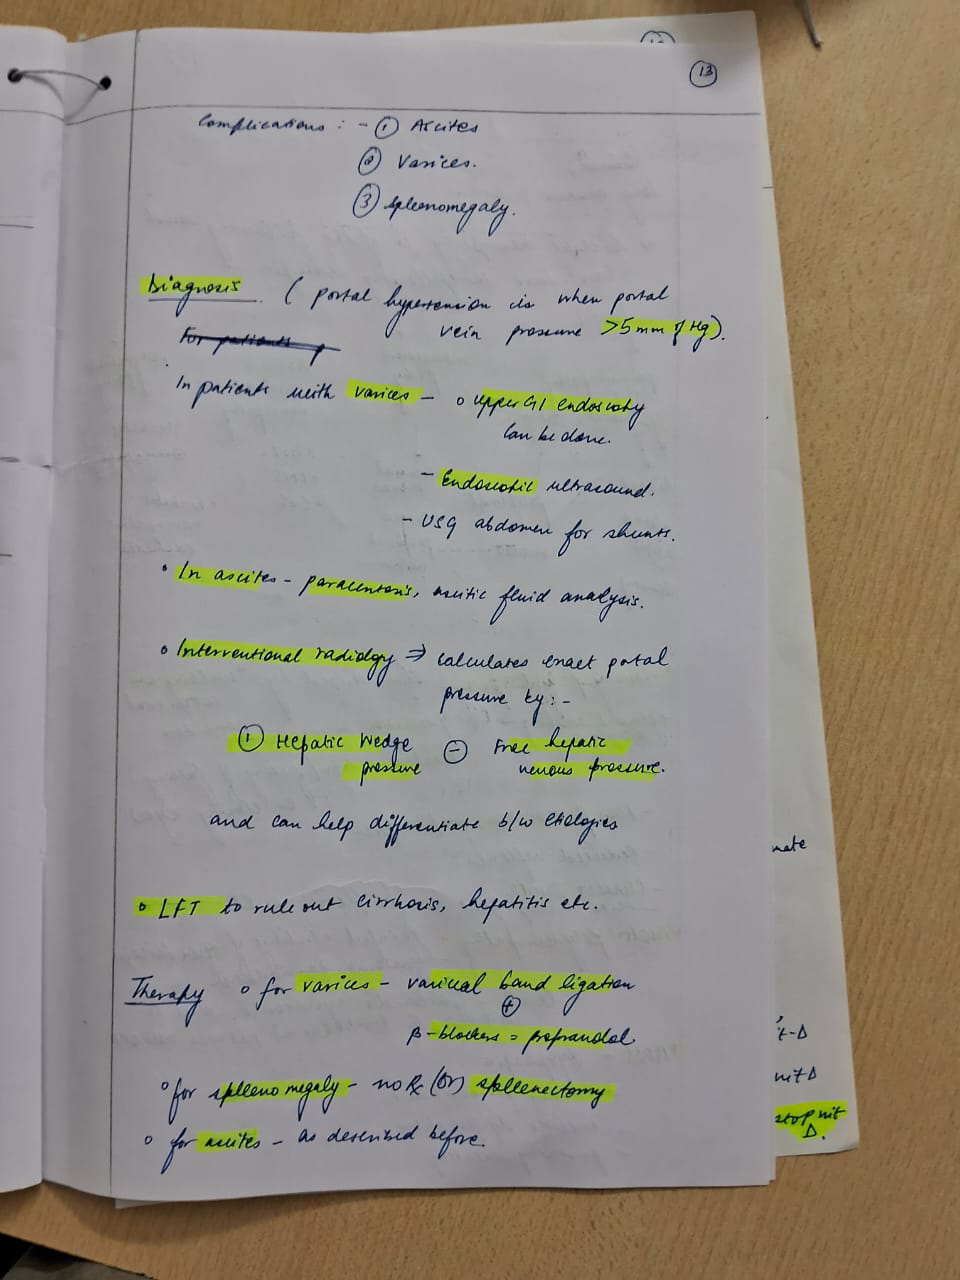 13
Complications : - ① Ascites
② Varices.
③ Spleenomegaly.
Diagnosis. ( portal hypertension is when portal
vein pressure >5mm of Hg).
For patients
In patients with varices - o upper GI endoscopy
can be done.
- Endoscopic ultrasound.
- USG abdomen for shunts.
• In ascites - paracentesis, ascitic fluid analysis.
o Interventional radiology ⇒ calculates exact portal
pressure by:-
① Hepatic Wedge ⊖ Free hepatic
pressure venous pressure.
and can help differentiate b/w etiologies
o LFT to rule out cirrhosis, hepatitis etc.
Therapy o for varices - variceal band ligation
⊕
β-blockers = propranolol
o for spleenomegaly - no Rx (or) spleenectomy
o for ascites - as described before.
nit Δ
stop nit
Δ.